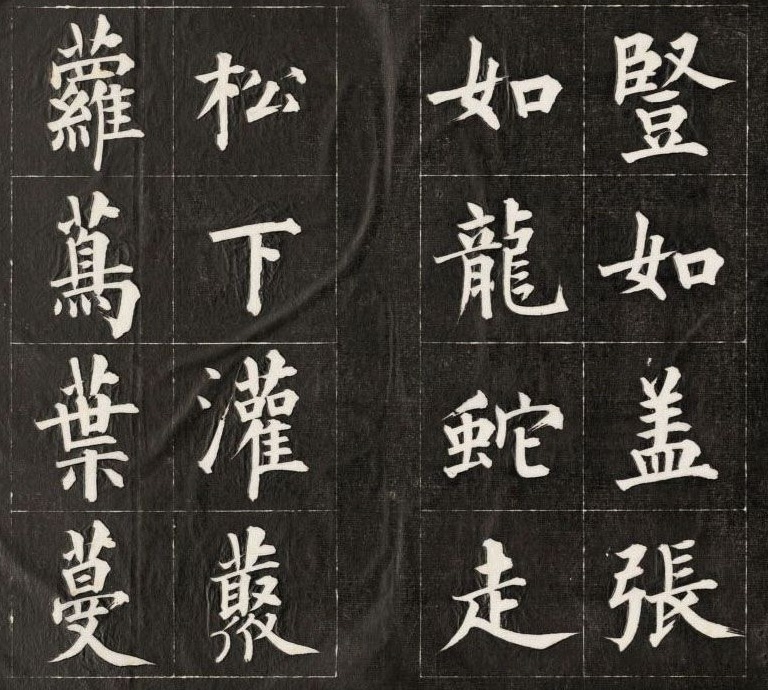 豎如盖張
如龍蛇走
松下灌藂
蘿蔦葉蔓